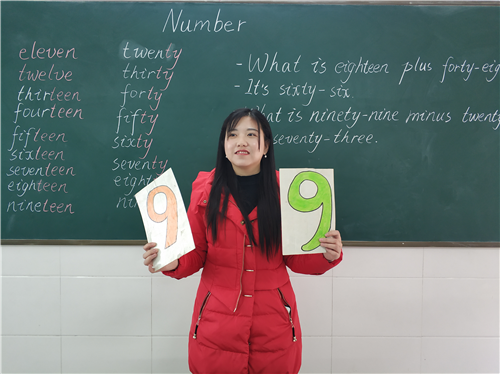 Number
eleven
twelve
thirteen
fourteen
fifteen
sixteen
seventeen
eighteen
nineteen
twenty
thirty
forty
fifty
sixty
seventy
- What is eighteen plus forty-eig
- It's sixty-six.
What is ninety-nine minus twenty
seventy-three.
9
9